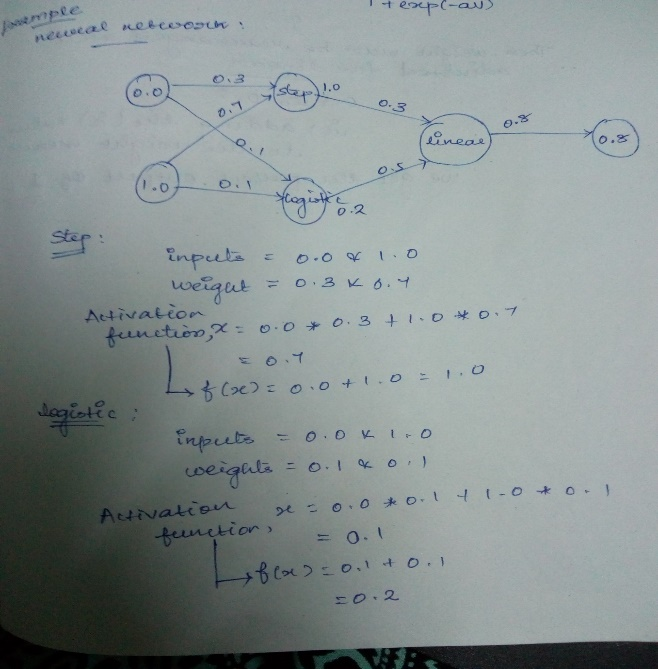 1 + exp(-au)
Example
neural network :
0.0
0.3
step
1.0
0.3
0.7
0.1
linear
0.8
0.8
1.0
0.1
logistic
0.5
0.2
Step :
inputs = 0.0 & 1.0
weight = 0.3 & 0.7
Activation
function, x = 0.0 * 0.3 + 1.0 * 0.7
= 0.7
f(x) = 0.0 + 1.0 = 1.0
logistic :
inputs = 0.0 & 1.0
weights = 0.1 & 0.1
Activation x = 0.0 * 0.1 + 1.0 * 0.1
function, = 0.1
f(x) = 0.1 + 0.1
= 0.2